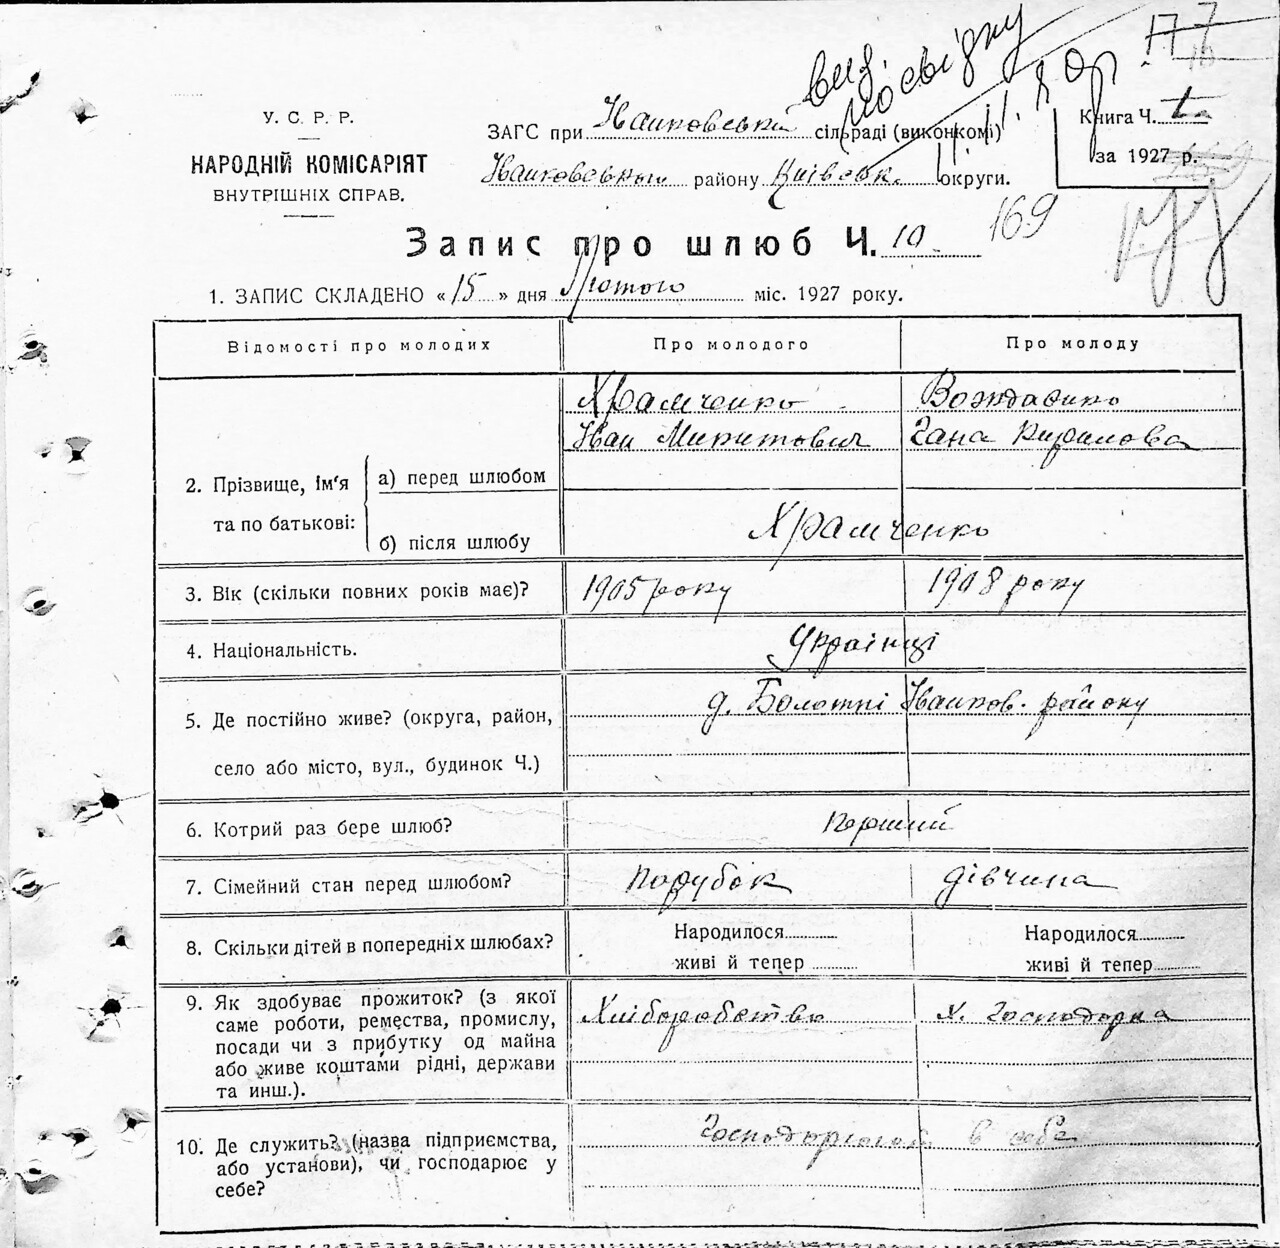 вид. посвідку
177
У. С. Р. Р.
НАРОДНІЙ КОМІСАРІЯТ
ВНУТРІШНІХ СПРАВ.
ЗАГС при Іванковській сільраді (виконкомі)
Іванковського району Київськ. округи.
Книга Ч.
за 1927 р.
169
Запис про шлюб Ч. 10
1. ЗАПИС СКЛАДЕНО « 15 » дня Лютого міс. 1927 року.
Відомості про молодих Про молодого Про молоду
2. Прізвище, ім'я та по батькові:
а) перед шлюбом
Храмченко
Іван Микитович
Гана Кирилова
б) після шлюбу
Храмченко
3. Вік (скільки повних років має)? 1905 року 1908 року
4. Національність. Українці
5. Де постійно живе? (округа, район, д. Болотні Іванков. району
село або місто, вул., будинок Ч.)
6. Котрий раз бере шлюб? Перший
7. Сімейний стан перед шлюбом? парубок дівчина
8. Скільки дітей в попередніх шлюбах? Народилося Народилося
живі й тепер живі й тепер
9. Як здобуває прожиток? (з якої Хліборобство Х. Господарка
саме роботи, ремества, промислу,
посади чи з прибутку од майна
або живе коштами рідні, держави
та инш.).
10. Де служить? (назва підприємства, в себе
або установи), чи господарює у
себе?